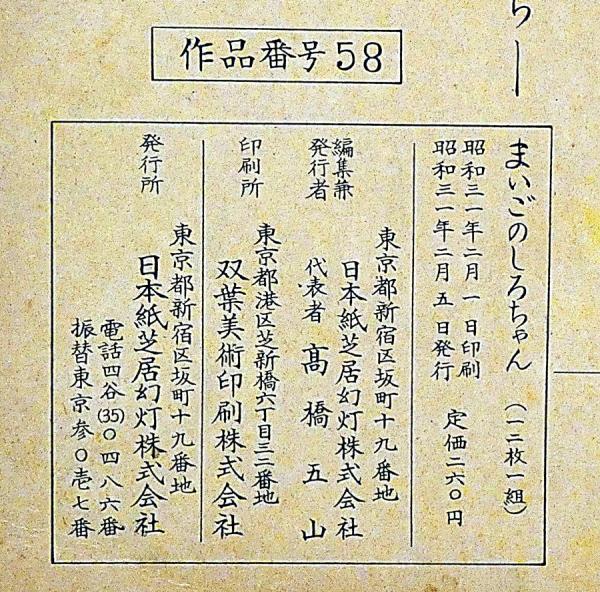 らー
作品番号58
まいごのしろちゃん（一二枚一組）
昭和三一年二月一日印刷
昭和三一年二月五日発行 定価二六〇円
東京都新宿区坂町十九番地
編集兼発行者 日本紙芝居幻灯株式会社
代表者 髙橋五山
東京都港区芝新橋六丁目三二番地
印刷所 双葉美術印刷株式会社
東京都新宿区坂町十九番地
発行所 日本紙芝居幻灯株式会社
電話四谷(35)〇四八六番
振替東京参〇壱七番